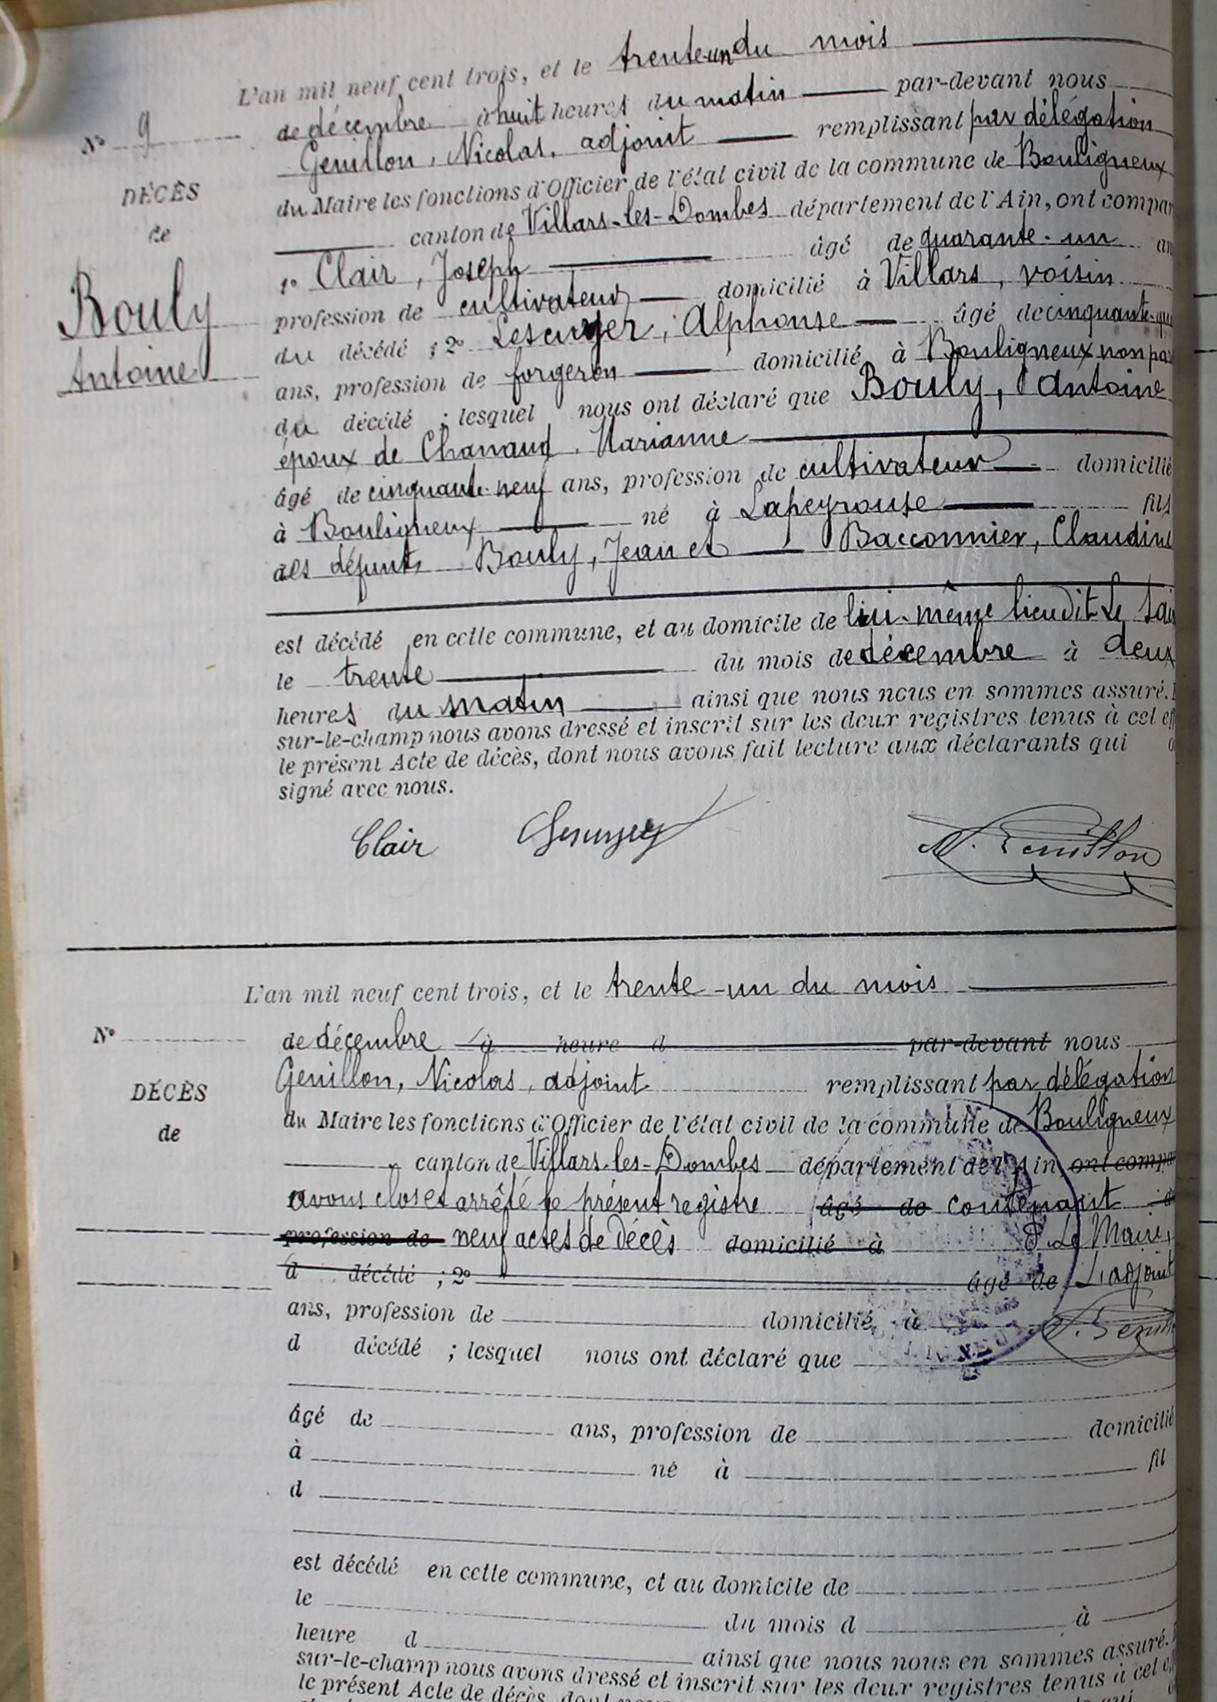 L'an mil neuf cent trois, et le trente-un du mois
de décembre à huit heures du matin par-devant nous
N° 9
Genillon, Nicolas, adjoint remplissant par délégation
DÉCÈS
du Maire les fonctions d'Officier de l'état civil de la commune de Bouligneux
de
canton de Villars-les-Dombes département de l'Ain, ont compar
Bouly
Antoine
1° Clair, Joseph âgé de quarante-un an
profession de cultivateur domicilié à Villars, voisin
du décédé ; 2° Lescuyer, Alphonse âgé de cinquante-
ans, profession de forgeron domicilié à Bouligneux non pa
du décédé ; lesquel nous ont déclaré que Bouly, Antoine
époux de Chanaud, Marianne
âgé de cinquante-neuf ans, profession de cultivateur domicilié
à Bouligneux né à Lapeyrouse fils
des défunts Bouly, Jean et Bacconnier, Claudine
est décédé en cette commune, et au domicile de lui-même lieu dit Le
le trente du mois de décembre à deux
heures du matin ainsi que nous nous en sommes assuré.
sur-le-champ nous avons dressé et inscrit sur les deux registres tenus à cet ef
le présent Acte de décès, dont nous avons fait lecture aux déclarants qui o
signé avec nous.
Clair Lescuyer N. Genillon
L'an mil neuf cent trois, et le trente-un du mois
N°
de décembre à heure d par-devant nous
Genillon, Nicolas, adjoint remplissant par délégation
DÉCÈS
de
du Maire les fonctions d'Officier de l'état civil de la commune de Bouligneux
canton de Villars-les-Dombes département de l'Ain ont compa
avons clos et arrêté le présent registre âgé de contenant
profession de neuf actes de Décès domicilié à P. Le Maire,
d décédé ; 2° âgé de L'adjoint
ans, profession de domicilié à
d décédé ; lesquel nous ont déclaré que
âgé de ans, profession de domicilié
à né à fil
d
est décédé en cette commune, et au domicile de
le du mois d à
heure d ainsi que nous nous en sommes assuré.
sur-le-champ nous avons dressé et inscrit sur les deux registres tenus à cet e
le présent Acte de décès, dont nous